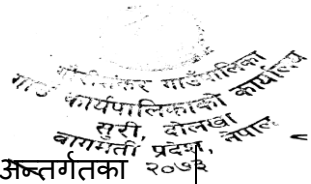 गौरीशंकर गाउँपालिका
गाउँ कार्यपालिकाको कार्यालय
सुरी, दोलखा
बागमती प्रदेश, नेपाल
२०७३
अन्तर्गतका